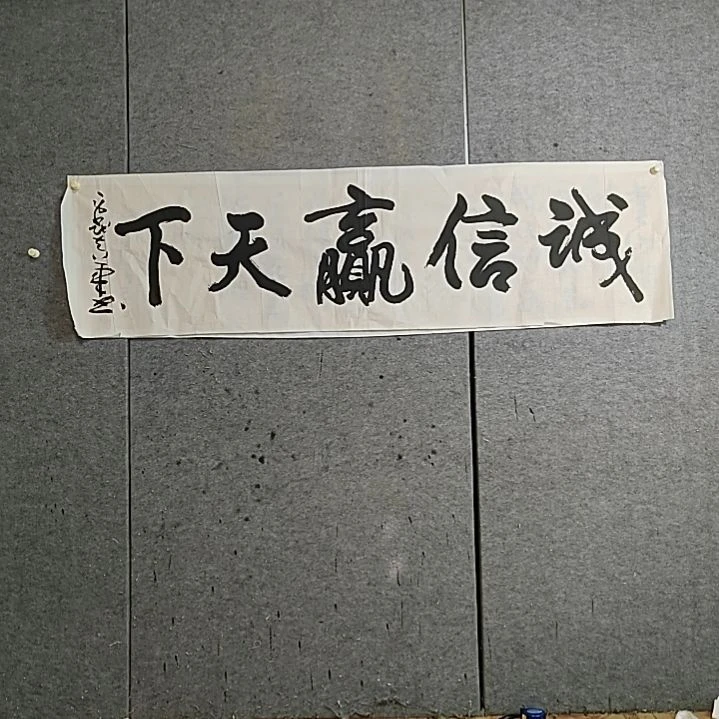 诚信赢天下